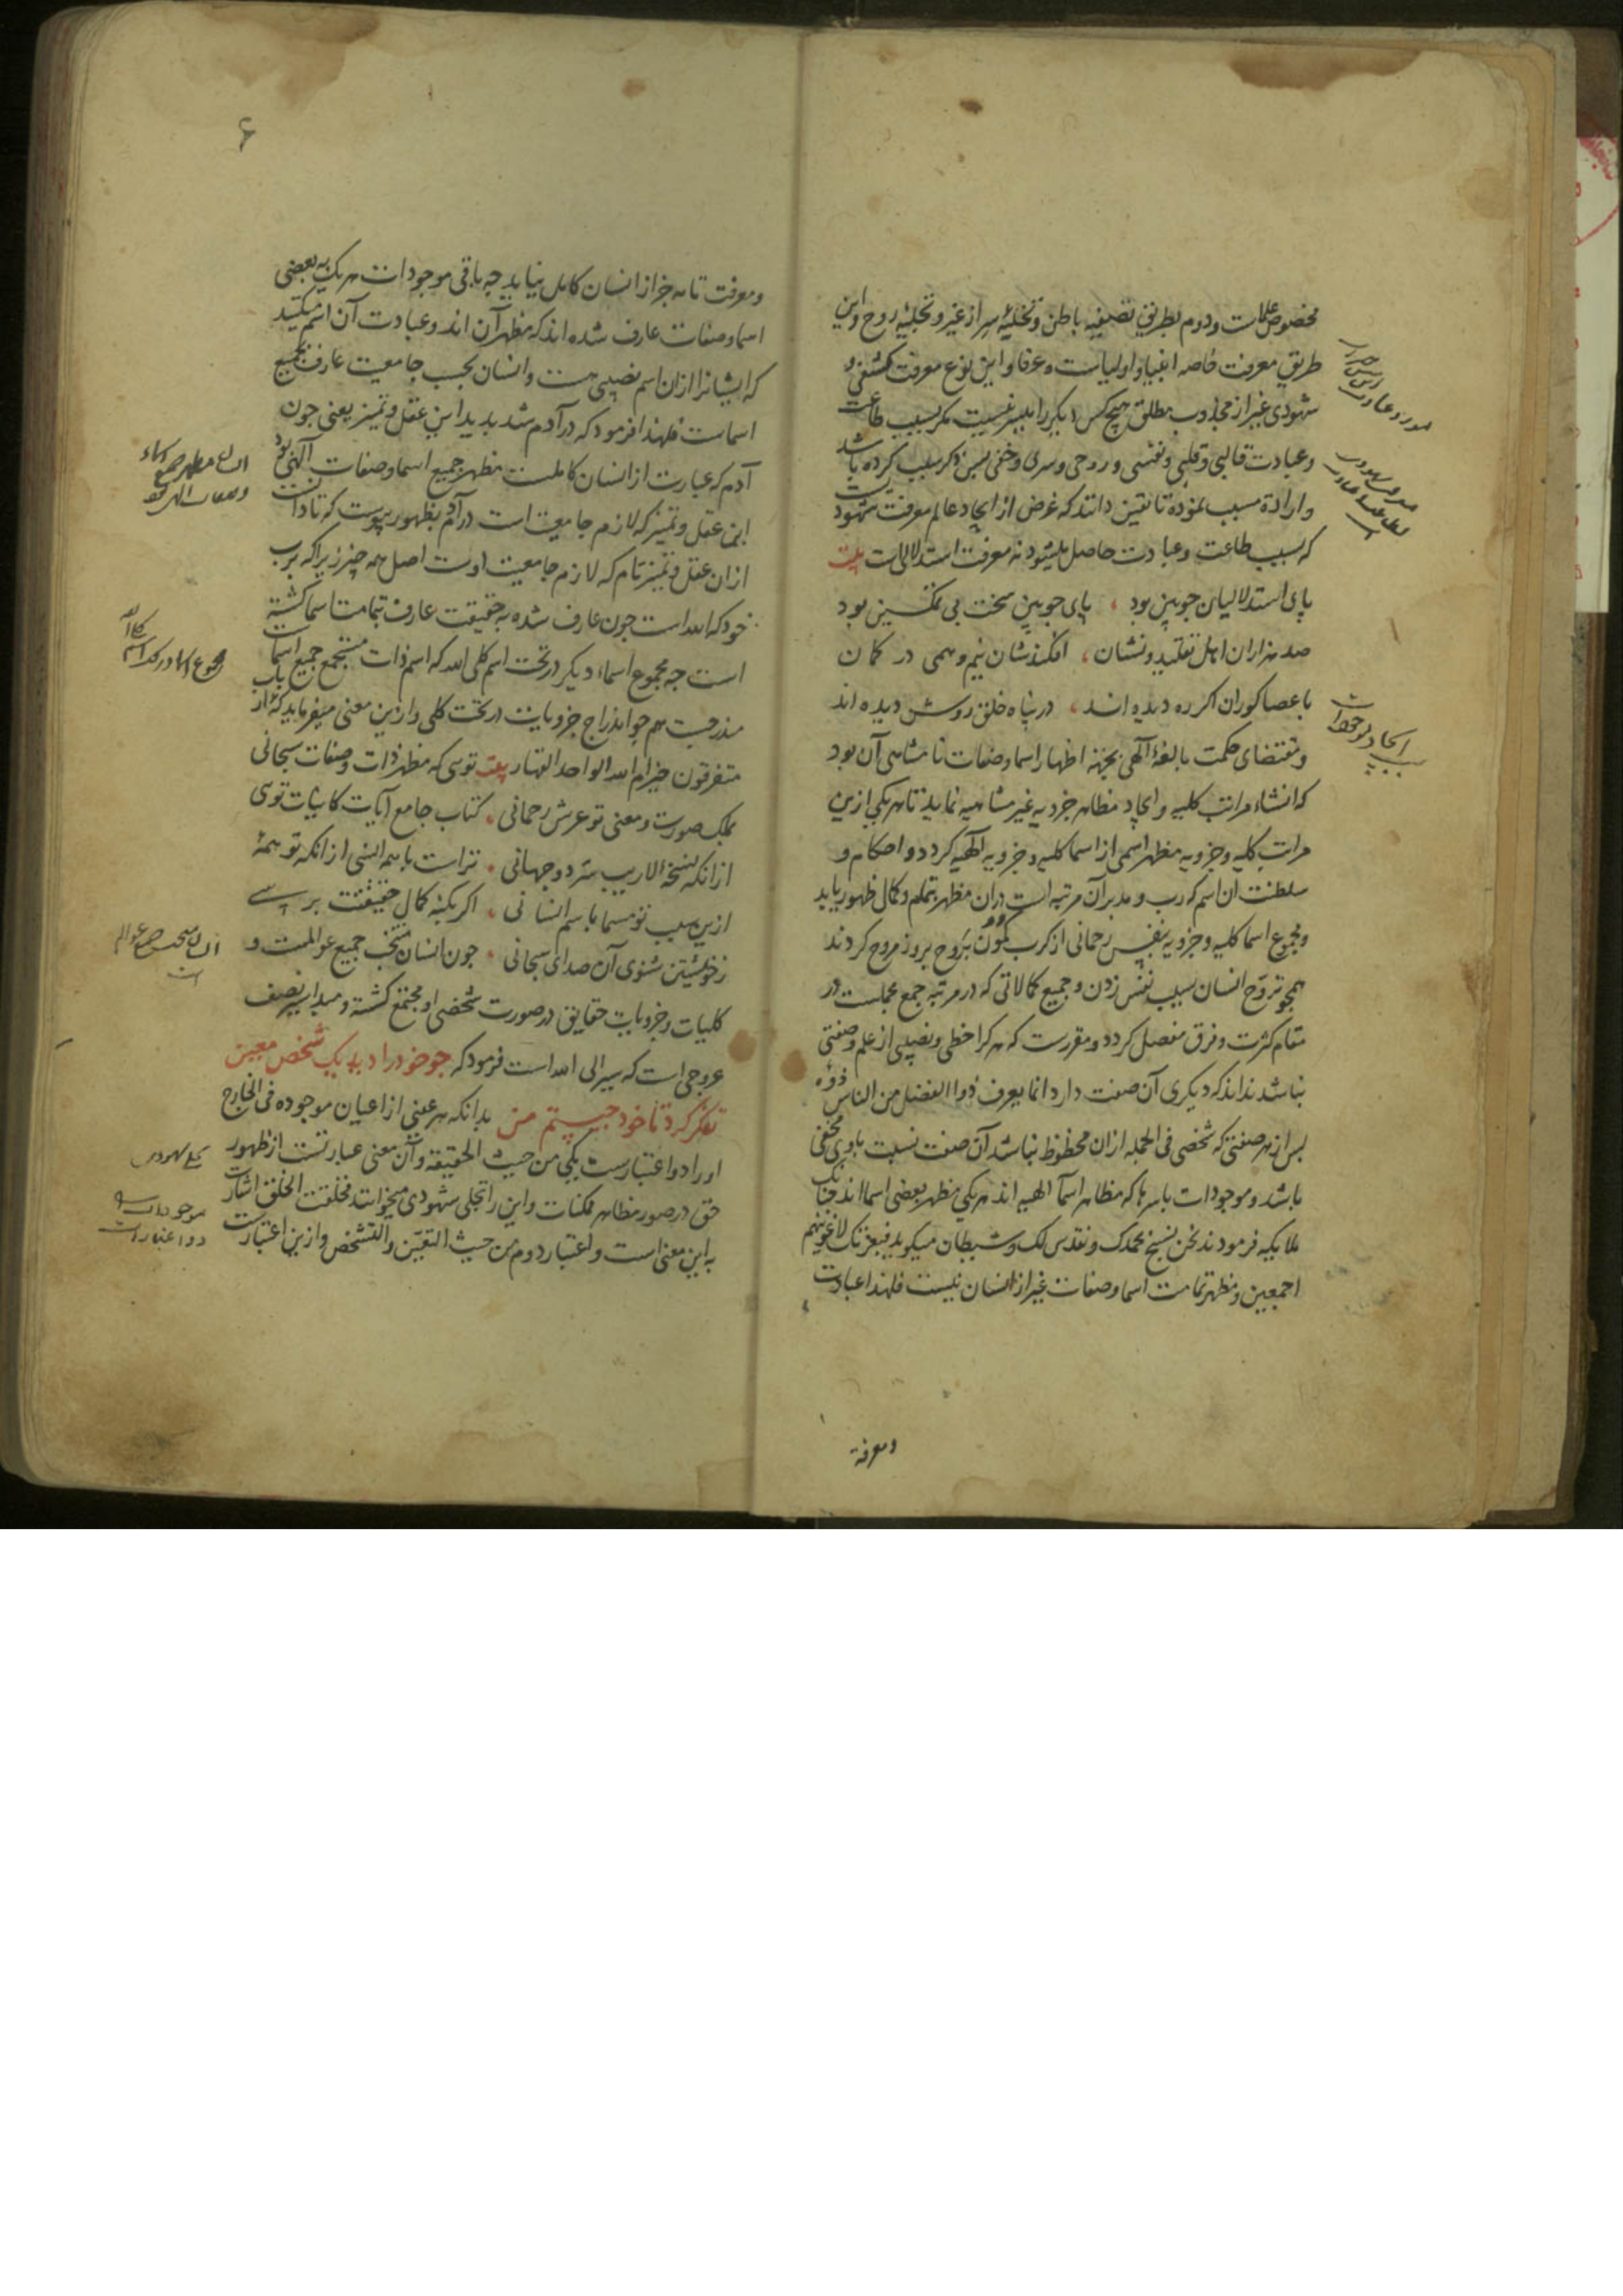 مخصوص علماست و دوم بطریق تصفیه باطن و تخلیهٔ سر از غیر و تجلیهٔ روح و این
طریق معرفت خاصه انبیا و اولیاست و عرفا و این نوع معرفت کشفی و
شهودی غیر از مجذوب مطلق هیچ کس دیگر را میسر نیست مکر بسبب طاعت
و عبادت قالبی و قلبی و نفسی و روحی و سری و خفی پس ذکر سبب کرده باشد
و ارادهٔ مسبب نموده تا یقین دانند که غرض از ایجاد عالم معرفت شهودیست
که بسبب طاعت و عبادت حاصل میشود نه معرفت استدلالات بیت
پای استدلالیان چوبین بود ، پای چوبین سخت بی تمکین بود
صد هزاران اهل تقلید و نشان ، افکندشان نیم وهمی در کمان
با عصا کوران اکر ره دیده اند ، در پناه خلق روشن دیده اند
و مقتضای حکمت بالغهٔ الهی بجهته اظهار اسما و صفات نامتناهی آن بود
که انشاء مراتب کلیه و ایجاد مظاهر جزویه غیر متناهیه نماید تا هریکی ازین
مراتب کلیه و جزویه مظهر اسمی از اسما کلیه و جزویه الهیه کردد و احکام و
سلطنت ان اسم که رب و مدبر آن مرتبه است دران مظهر بتمام و کمال ظهور یابد
و مجموع اسما کلیه و جزویه بنفس رحمانی از کرب کمون بروح بروز مروح کردند
همچو تروح انسان بسبب نفس زدن و جمیع کمالاتی که در مرتبه جمع مجملست در
مقام کثرت و فرق مفصل کردد و مقررست که هر کرا حظی و نصیبی از علم و صفتی
نباشد نداند که دیکری آن صفت دارد انما یعرف ذوا الفضل من الناس ذووه
پس از هر صفتی که شخصی فی الجمله ازان محظوظ نباشد آن صفت نسبت باوی مخفی
باشد و موجودات باسرها که مظاهر اسما الهیه اند هر یکی مظهر بعضی اسما اند چنانک
ملایکه فرمودند نحن نسبح بحمدک و نقدس لک و شیطان میکوید فبعزتک لاغوینهم
اجمعین و مظهر تمامت اسما و صفات غیر از انسان نیست فلهذا عبادت
ومعرفة
سبب ایجاد موجودات
۶
و معرفت تامه جز از انسان کامل نیاید چه باقی موجودات هر یک به بعضی
اسما و صفات عارف شده اند که مظهر آن اند و عبادت آن اسم میکنند
که ایشانرا ازان اسم نصیبی هست و انسان بحسب جامعیت عارف بجمیع
اسماست فلهذا فرمود که در آدم شد پدید این عقل و تمییز یعنی چون
آدم که عبارت از انسان کاملست مظهر جمیع اسما و صفات الهی بود
این عقل و تمییز که لازم جامعیت است در آدم بظهور پیوست که تا دانست
ازان عقل و تمییز تام که لازم جامعیت اوست اصل همه چیز زیرا که برب
خود که الله است چون عارف شده به حقیقت عارف بتمامت اسما کشته
است چه مجموع اسماء دیکر در تحت اسم کلی الله که اسم ذات مستجمع جمیع اسماست
مندرجست همچو اندراج جزویات در تحت کلی و ازین معنی میفرماید که ءارباب
متفرقون خیر ام الله الواحد القهار بیت توئی که مظهر ذات و صفات سبحانی
بملک صورت و معنی تو عرش رحمانی ، کتاب جامع آیات کاینات توی
ازانکه نسخهٔ لاریب سر دو جهانی ، تراست با همه انسی ازانکه تو همهٔ
ازین سبب تو مسما باسم انسانی ، اکر بکنه کمال حقیقتت برسی
ز خویشتن شنوی آن صدای سبحانی ، چون انسان منتخب جمیع عوالمست و
کلیات و جزویات حقایق در صورت شخصی او مجتمع کشته و مبدا سیر نصف
عروجی است که سیر الی الله است فرمود که چو خود را دید یک شخص معین
تفکر کرد تا خود چیستم من بدانکه هر عینی از اعیان موجوده فی الخارج
او را دو اعتبارست یکی من حیث الحقیقه و آن معنی عبارتست از ظهور
حق در صور مظاهر ممکنات و این را تجلی شهودی میخوانند فخلقت الخلق اشارت
به این معنی است و اعتبار دوم من حیث التعین و التشخص و ازین اعتبارست
انسان مظهر جمیع اسماء
و صفات الهی
انسان منتخب جمیع عوالم
است
تجلی شهودی
موجودات را
دو اعتبار است